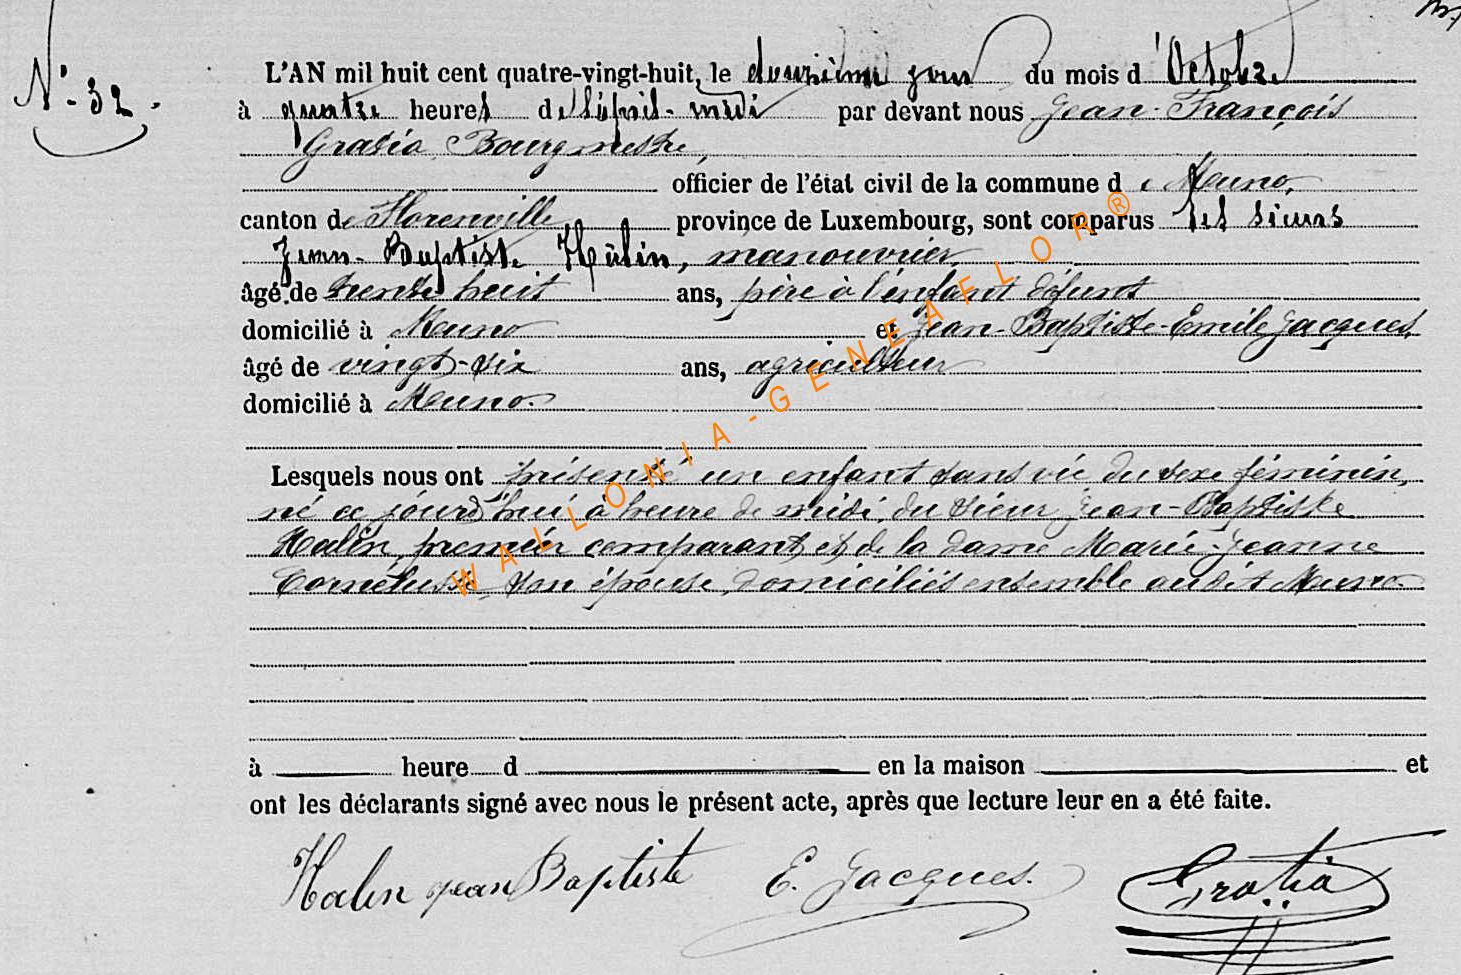 N° 32.
L'AN mil huit cent quatre-vingt-huit, le douzième jour du mois d'Octobre
à quatre heures de l'après-midi par devant nous Jean-François
Gratia, Bourgmestre,
officier de l'état civil de la commune de Muno,
canton de Florenville province de Luxembourg, sont comparus les sieurs
Jean-Baptiste Halin, manouvrier,
âgé de trente huit ans, père à l'enfant défunt
domicilié à Muno et Jean-Baptiste-Emile Jacques,
âgé de vingt-six ans, agriculteur
domicilié à Muno.
Lesquels nous ont présenté un enfant sans vie du sexe féminin,
né ce jourd'hui, à heure de midi, du sieur Jean-Baptiste
Halin, premier comparant, et de la dame Marie-Jeanne
son épouse, domiciliés ensemble audit Muno.
à heure d en la maison et
ont les déclarants signé avec nous le présent acte, après que lecture leur en a été faite.
Halin jean Baptiste E. Jacques. Gratia
WALLONIA-GENEAFLOR®